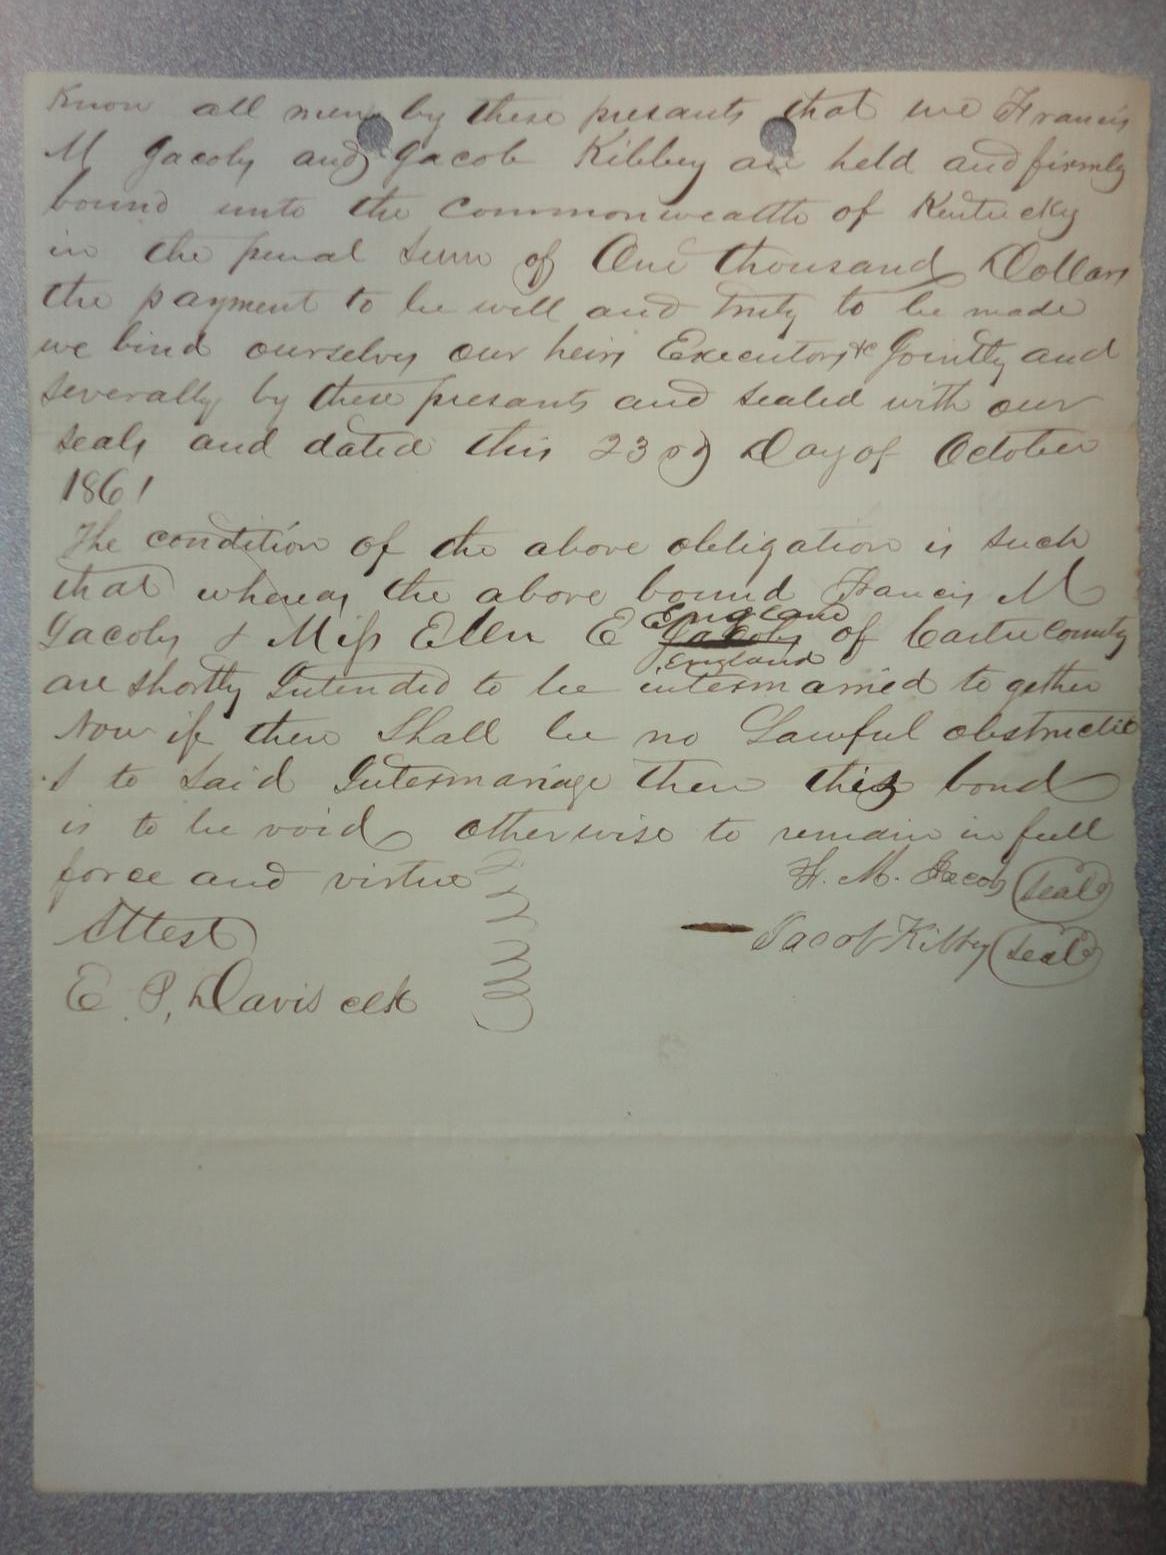 Know all men by these presants that we Francis
M Jacoby and Jacob Kibbey are held and firmly
bound unto the Commonwealth of Kentucky
in the penal sum of One thousand Dollars
the payment to be well and truly to be made
we bind ourselvs our heirs Executors &c Jointly and
severally by these presants and sealed with our
seals and dated this 23rd Day of October
1861
The condition of the above obligation is such
that whereas the above bound Francis M
England
Jacoby & Miss Ellen E Jacoby of Carter County
England
are shortly Intended to be intermarried together
Now if there Shall be no Lawful obstructio
to said Intermariage then this bond
is to be void otherwise to remain in full
force and virtue
F. M. Jacoby (seal)
Attest
Jacob Kibby (seal)
E. P. Davis clk